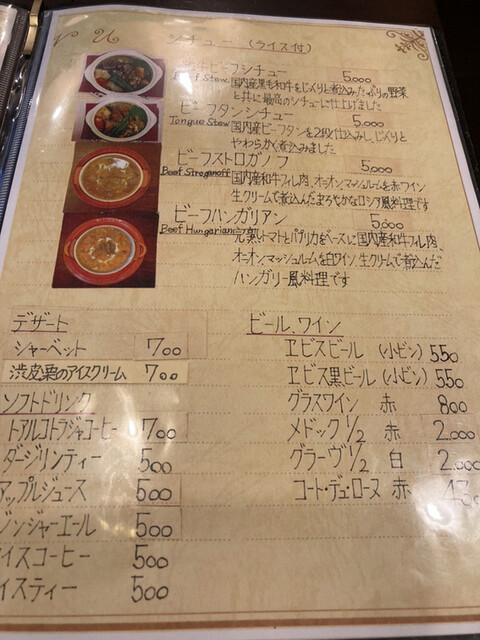 シチュー (ライス付)
ビーフシチュー 5,000
Beef Stew 国内産黒毛和牛をじっくりと煮込みたっぷりの野菜
と共に最高のシチューに仕上げました
ビーフタンシチュー 5,000
Tongue Stew 国内産ビーフタンを2段仕込みし、じっくりと
やわらかく煮込みました
ビーフストロガノフ 5,000
Beef Stroganoff 国内産和牛フィレ肉、オニオン、マッシュルームを赤ワイン
生クリームで煮込んだまろやかなロシア風料理です
ビーフハンガリアン 5,000
Beef Hungarian 完熟トマトとパプリカをベースに国内産和牛フィレ肉、
オニオン、マッシュルームを白ワイン、生クリームで煮込んだ
ハンガリー風料理です
デザート
シャーベット 700
渋皮栗のアイスクリーム 700
ソフトドリンク
トアルコトラジャコーヒー 700
ダージリンティー 500
アップルジュース 500
ジンジャーエール 500
アイスコーヒー 500
アイスティー 500
ビール、ワイン
ヱビスビール (小ビン) 550
ヱビス黒ビール (小ビン) 550
グラスワイン 赤 800
メドック 1/2 赤 2.000
グラーヴ 1/2 白 2.000
コート・デュ・ローヌ 赤